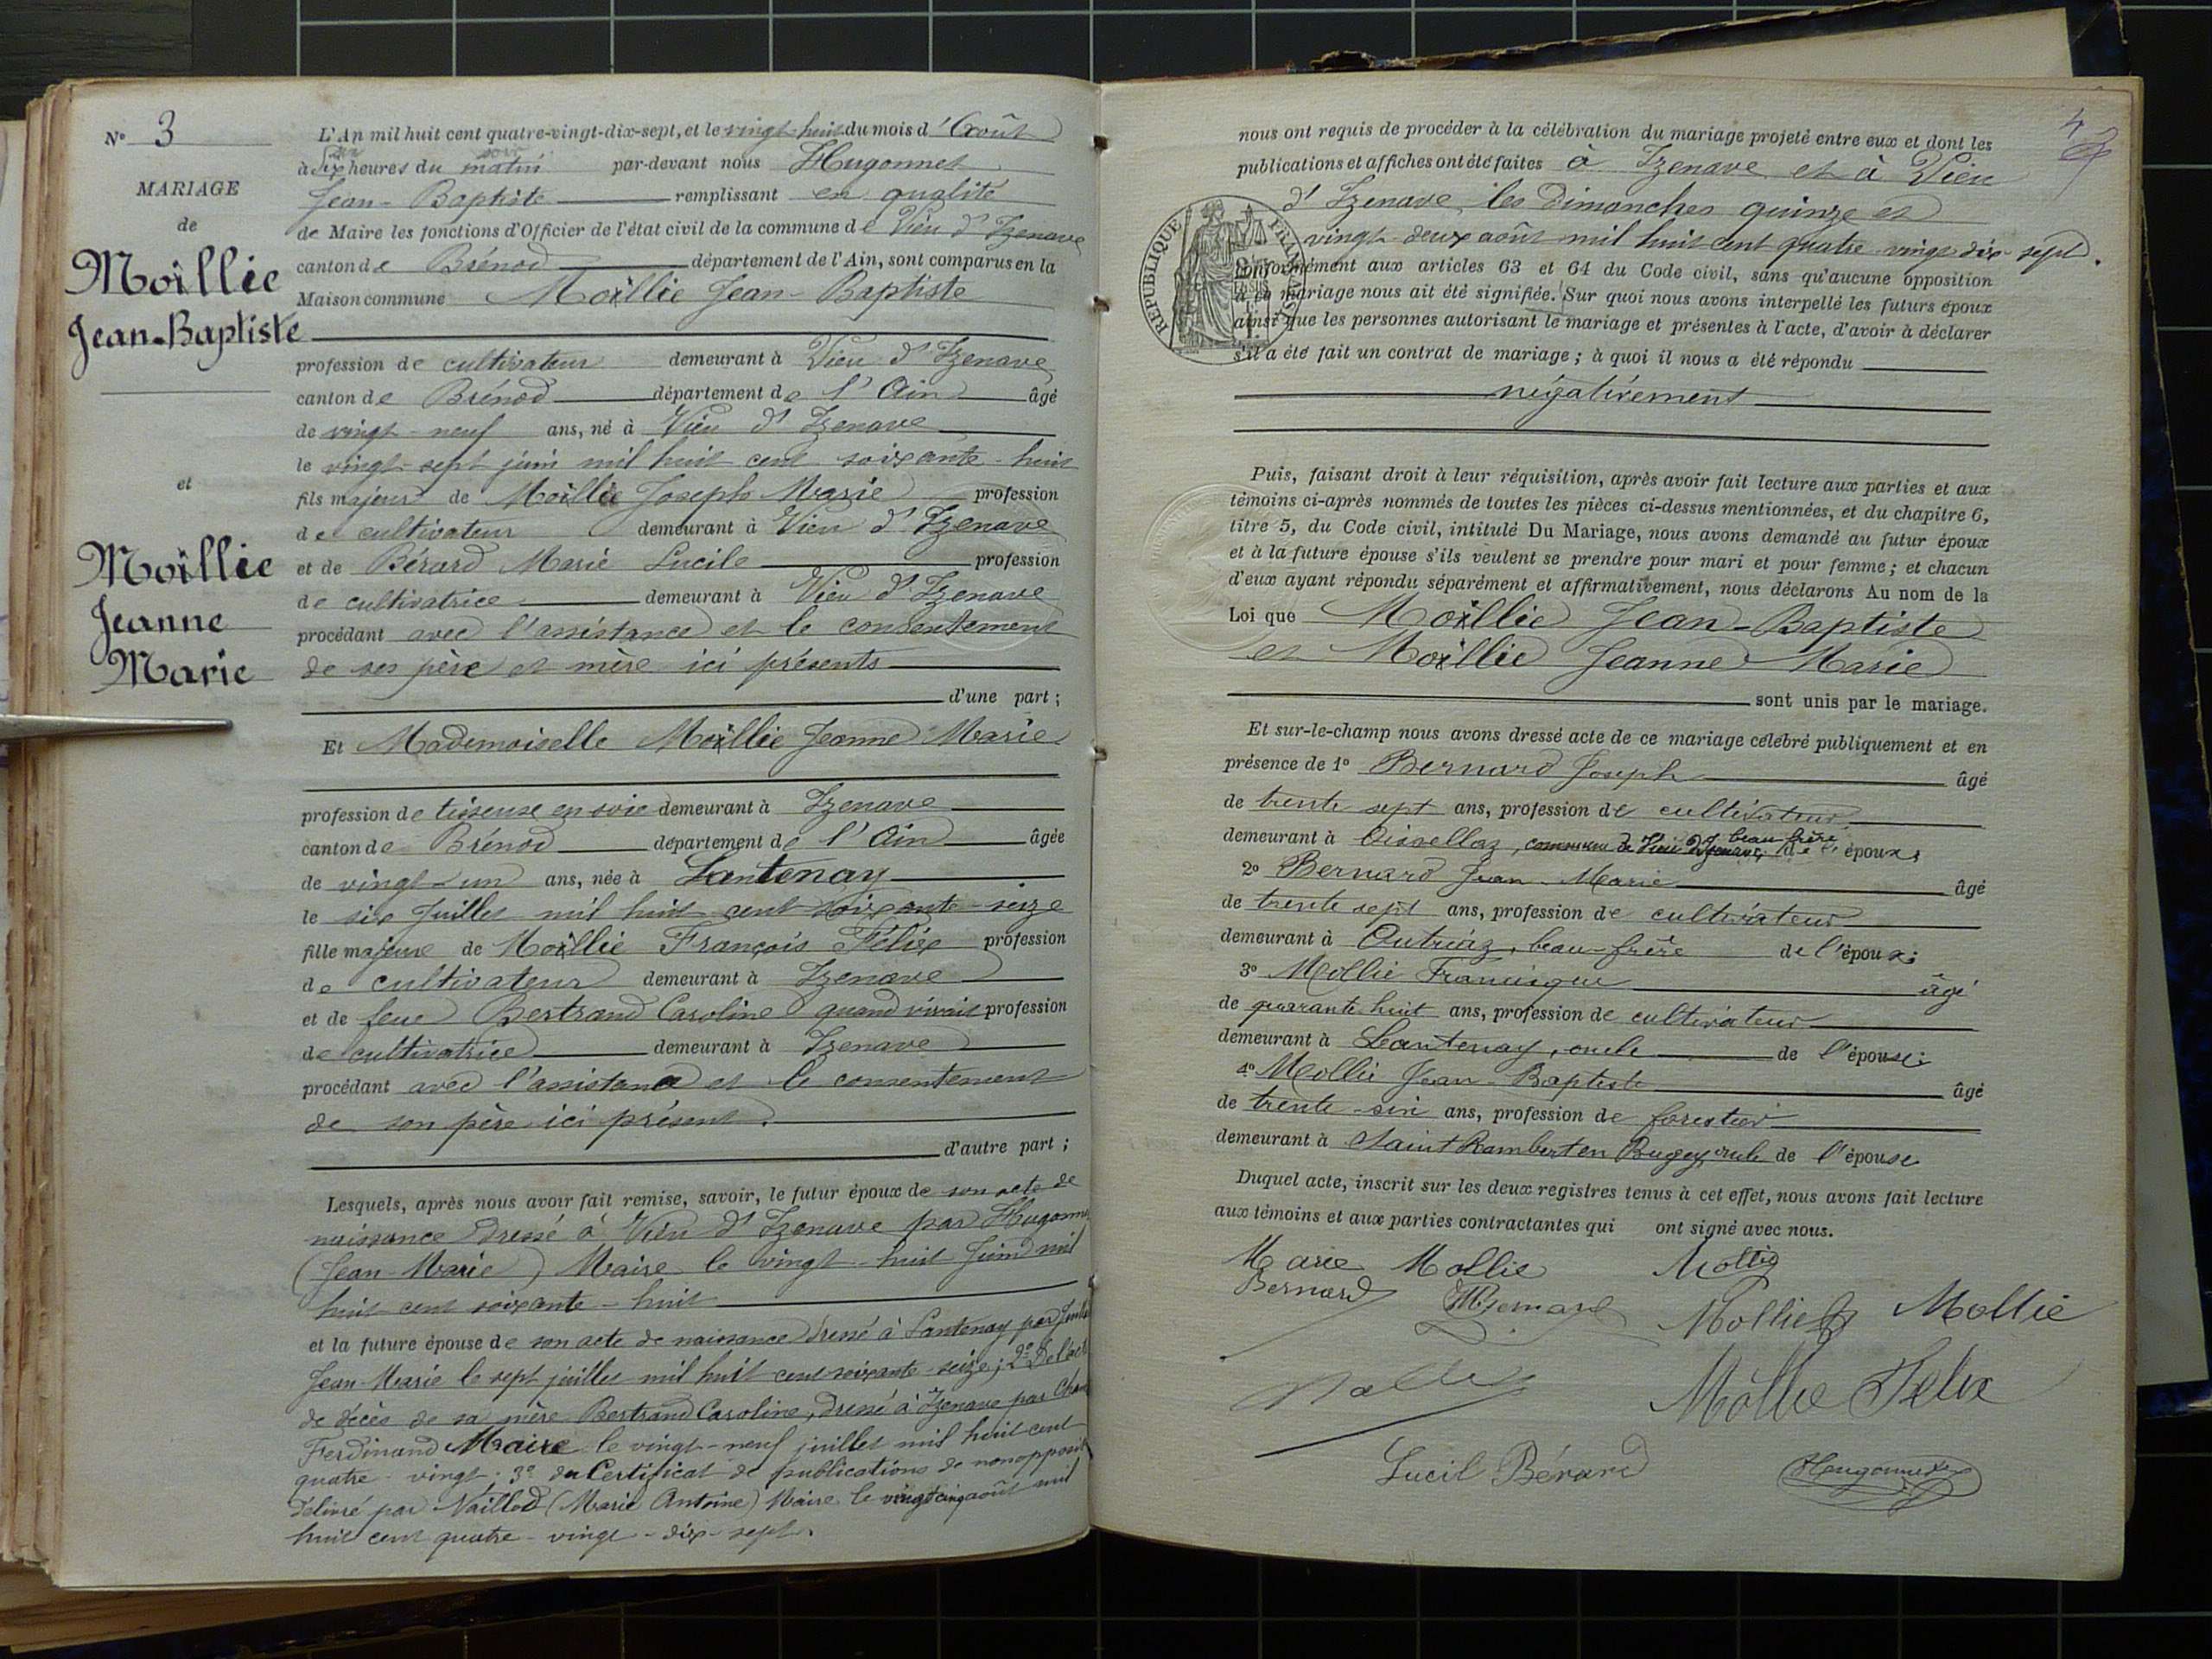 N° 3
MARIAGE
de
Moïllie
Jean-Baptiste
et
Moïllie
Jeanne
Marie
L'An mil huit cent quatre-vingt-dix-sept, et le vingt-huit du mois d'Août
à six heures du matin par-devant nous Hugonnet
Jean-Baptiste remplissant en qualité
de Maire les fonctions d'Officier de l'état civil de la commune de Vieu d'Izenave
canton de Brénod département de l'Ain, sont comparus en la
Maison commune Moïllie Jean-Baptiste
profession de cultivateur demeurant à Vieu d'Izenave
canton de Brénod département de l'Ain âgé
de vingt-neuf ans, né à Vieu d'Izenave
le vingt-sept juin mil huit cent soixante-huit
fils majeur de Moïllie Joseph Marie profession
de cultivateur demeurant à Vieu d'Izenave
et de Bérard Marie Lucile profession
de cultivatrice demeurant à Vieu d'Izenave
procédant avec l'assistance et le consentement
de ses père et mère ici présents
d'une part ;
Et Mademoiselle Moïllie Jeanne Marie
profession de tisseuse en soie demeurant à Izenave
canton de Brénod département de l'Ain âgée
de vingt-un ans, née à Lantenay
le six Juillet mil huit cent soixante-seize
fille majeure de Moïllie François Félix profession
de cultivateur demeurant à Izenave
et de feue Bertrand Caroline quand vivait profession
de cultivatrice demeurant à Izenave
procédant avec l'assistance et le consentement
de son père ici présent.
d'autre part ;
Lesquels, après nous avoir fait remise, savoir, le futur époux de son acte de
naissance dressé à Vieu d'Izenave par Hugonne
(Jean-Marie) Maire le vingt-huit Juin mil
huit cent soixante-huit
et la future épouse de son acte de naissance dressé à Lantenay par
Jean-Marie le sept juillet mil huit cent soixante-seize ; 2° De l'acte
de décès de sa mère Bertrand Caroline, dressé à Izenave par
Ferdinand Maire le vingt-neuf juillet mil huit cent
quatre-vingt ; 3° du Certificat de publications de non opposit
délivré par Naillod (Marie Antoine) Maire le vingt cinq août mil
huit cent quatre-vingt-dix-sept.
4
nous ont requis de procéder à la célébration du mariage projeté entre eux et dont les
publications et affiches ont été faites à Izenave et à Vieu
d'Izenave, les dimanches quinze et
vingt-deux août mil huit cent quatre-vingt dix-sept.
RÉPUBLIQUE FRANÇAISE
conformément aux articles 63 et 64 du Code civil, sans qu'aucune opposition
à ce mariage nous ait été signifiée. Sur quoi nous avons interpellé les futurs époux
ainsi que les personnes autorisant le mariage et présentes à l'acte, d'avoir à déclarer
s'il a été fait un contrat de mariage ; à quoi il nous a été répondu
négativement
Puis, faisant droit à leur réquisition, après avoir fait lecture aux parties et aux
témoins ci-après nommés de toutes les pièces ci-dessus mentionnées, et du chapitre 6,
titre 5, du Code civil, intitulé Du Mariage, nous avons demandé au futur époux
et à la future épouse s'ils veulent se prendre pour mari et pour femme ; et chacun
d'eux ayant répondu séparément et affirmativement, nous déclarons Au nom de la
Loi que Moïllie Jean-Baptiste
et Moïllie Jeanne Marie
sont unis par le mariage.
Et sur-le-champ nous avons dressé acte de ce mariage célébré publiquement et en
présence de 1° Bernard Joseph âgé
de trente sept ans, profession de cultivateur
demeurant à Oisselaz, commune de Vieu d'Izenave, beau frère de l'époux ;
2° Bernard Jean-Marie âgé
de trente sept ans, profession de cultivateur
demeurant à Outriaz, beau-frère de l'époux ;
3° Mollie Francisque âgé
de quarante huit ans, profession de cultivateur
demeurant à Lantenay, oncle de l'épouse ;
4° Mollie Jean-Baptiste âgé
de trente-six ans, profession de forestier
demeurant à Saint Rambert en Bugey, oncle de l'épouse
Duquel acte, inscrit sur les deux registres tenus à cet effet, nous avons fait lecture
aux témoins et aux parties contractantes qui ont signé avec nous.
Marie Mollie Mollie
Bernard Bernard Mollie Mollie
Mollie Mollie Felix
Lucil Bérard Hugonnet